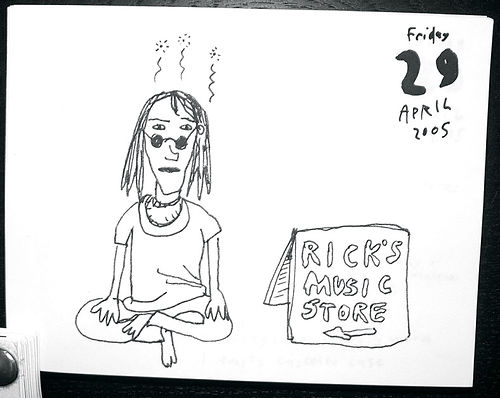 Friday
29
APRIL
2005
RICK'S
MUSIC
STORE